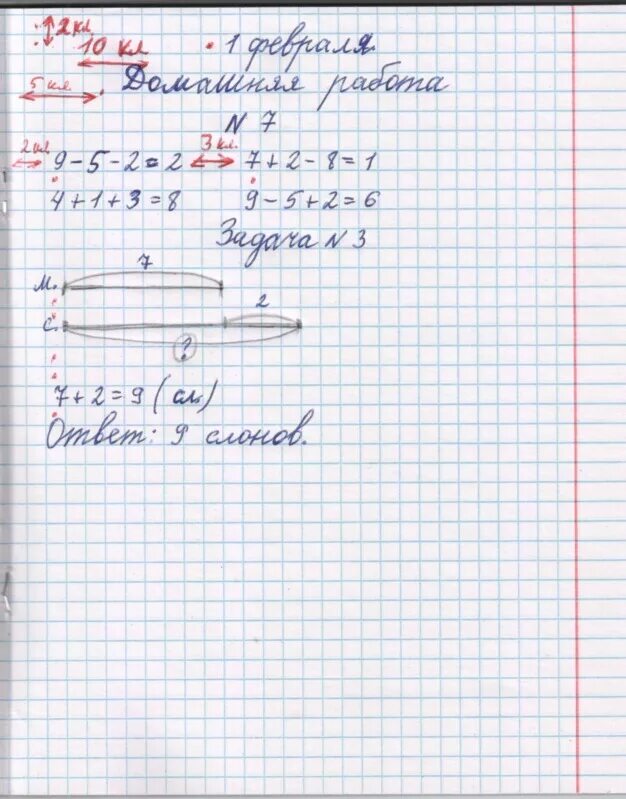 2 кл
10 кл 1 февраля.
5 кл Домашняя работа
N 7
2 кл 9-5-2=2 3 кл. 7+2-8=1
4+1+3=8 9-5+2=6
Задача N 3
7
М.
2
С.
?
7+2=9 (сл.)
Ответ: 9 слонов.